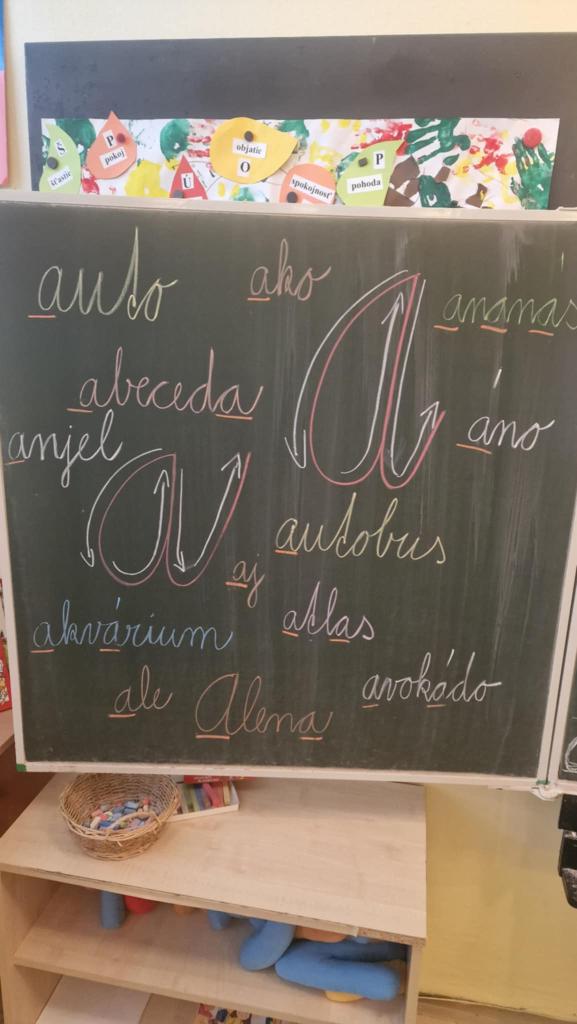 Š
šťastie
P
pokoj
Ú
objatie
O
spokojnosť
P
pohoda
auto
ako
ananás
abeceda
A
áno
anjel
a
autobus
aj
akvárium
atlas
ale
Alena
avokádo